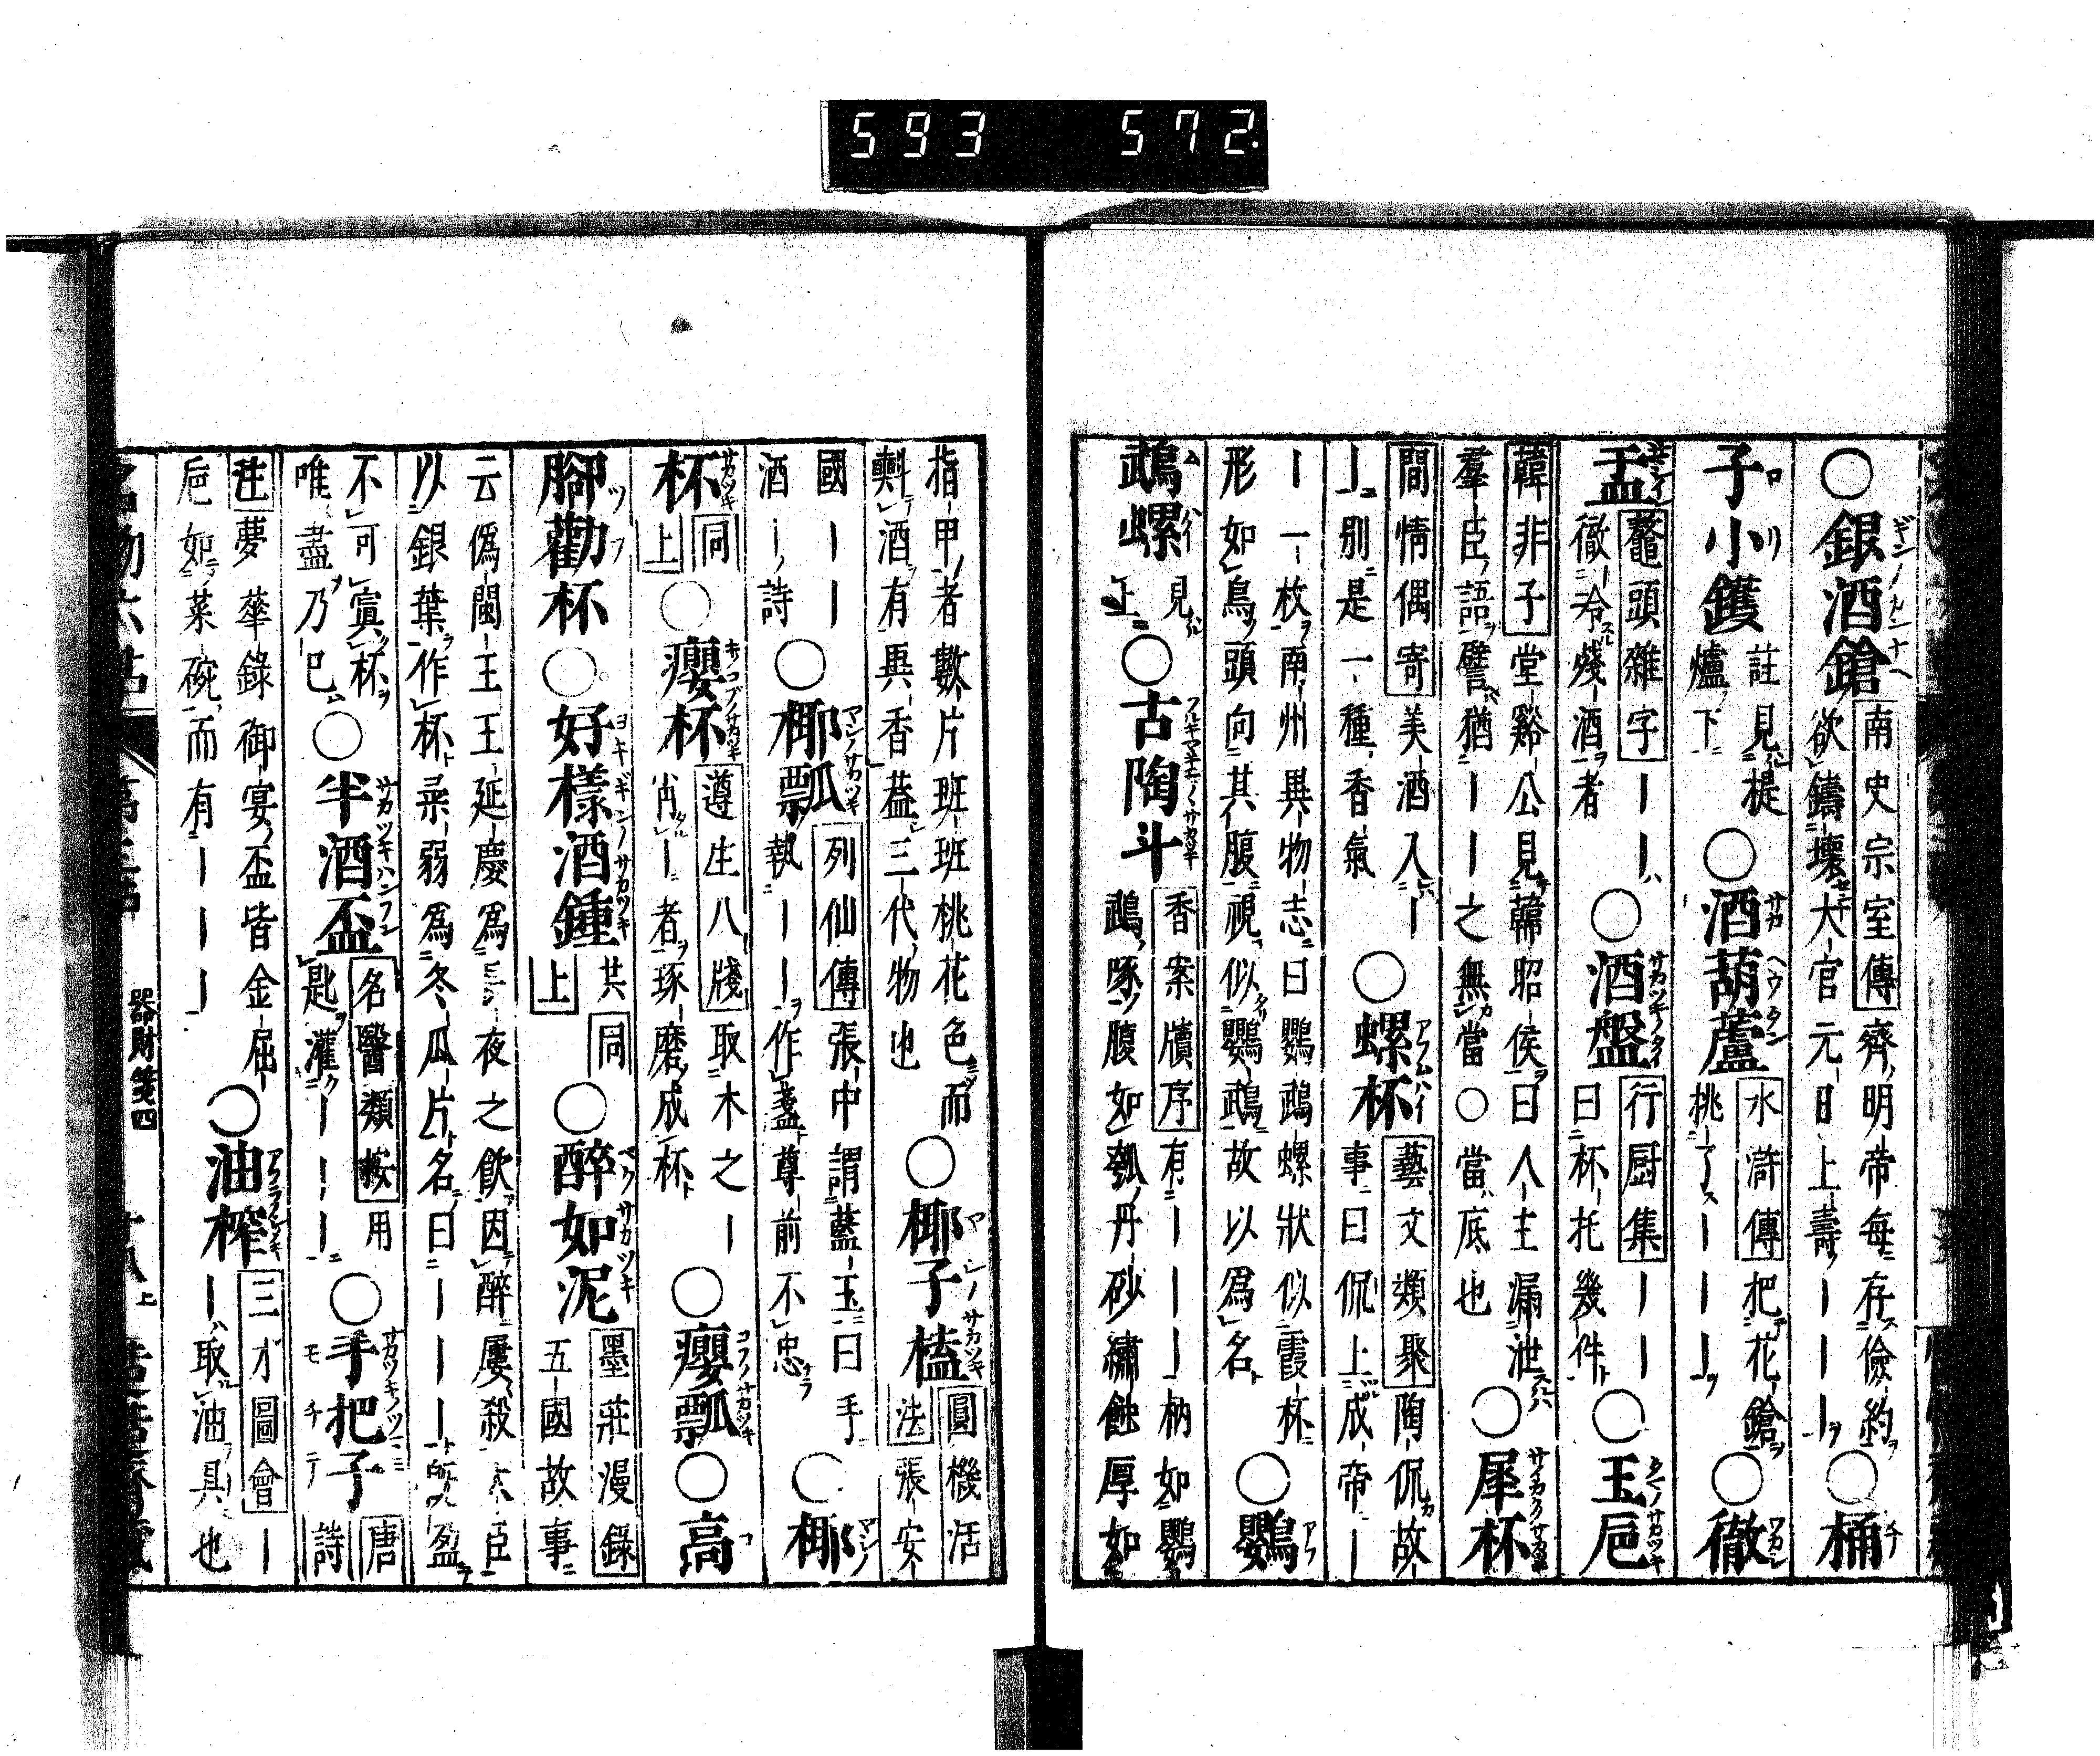 593 572.
○銀酒鎗 南史宗室傳 齊明帝每存儉約 欲鑄壞大官元日上壽ーーー ○桶
子小鑊 註見提爐下 ○酒葫蘆 水滸傳 把花鎗挑了ーーー ○徹
盂 鼇頭雜字 ーー 徹冷殘酒者 ○酒盤 行厨集 ーー曰杯托幾件 ○玉巵
韓非子 堂谿公見韓昭侯曰人主漏泄羣臣語譬猶ーー之無當○當底也 ○犀杯
閒情偶寄 美酒入ーー別是一種香氣 ○螺杯 藝文類聚 陶侃故事曰侃上成帝ー
ー一枚南州異物志曰鸚鵡螺狀似霞杯形如鳥頭向其腹視似鸚鵡故以爲名 ○鸚
鵡螺 見上 ○古陶斗 香案牘序 有ーーー柄如鸚鵡啄腹如瓠丹砂繡蝕厚如
指甲者數片班班桃花色而𣂏酒有異香葢三代物也 ○椰子榼 圓機活法 張安
國ーーー酒ー詩 ○椰瓢 列仙傳 張中謂藍玉曰手執ーー作盞尊前不忠 ○椰
杯 同上 ○癭杯 遵生八牋 取木之ー肖ー者琢磨成杯 ○癭瓢 ○高
脚勸杯 ○好樣酒鍾 共同上 ○醉如泥 墨莊漫錄 五國故事
云僞閩王王延慶爲長夜之飲因醉屢殺大臣以銀葉作杯柔弱爲冬瓜片名曰ーーー 盈
不可寘杯唯盡乃已 ○半酒盃 名醫類按 用匙灌ーーー ○手把子 唐詩
註 夢華錄御宴盃皆金屈巵如菜碗而有ーーー ○油榨 三才圖會 ーー取油具也
器財箋四